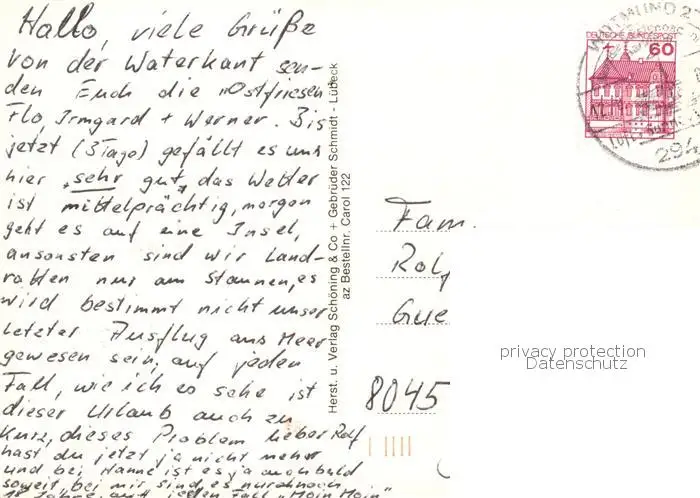 Hallo, viele Grüße
von der Waterkant sen-
den Euch die "Ostfriesen
Flo, Irmgard + Werner. Bis
jetzt (3 Tage) gefällt es uns
hier "sehr gut", das Wetter
ist mittelprächtig, morgen
geht es auf eine Insel,
ansonsten sind wir Land-
ratten nur am Staunen, es
wird bestimmt nicht unser
letzter Ausflug ans Meer
gewesen sein, auf jeden
Fall, wie ich es sehe ist
dieser Urlaub auch zu
kurz, dieses Problem lieber Rolf
hast du jetzt ja nicht mehr
und bei Hanne ist es ja auch bald
soweit, bei mir sind es nur noch
Jahre, auf jeden Fall "Moin Moin"
Herst. u. Verlag Schöning & Co + Gebrüder Schmidt - Lübeck
az Bestellnr. Carol 122
DEUTSCHE BUNDESPOST
60
WITTMUND 2
294
Fam.
Rolf
Gue
8045
privacy protection
Datenschutz